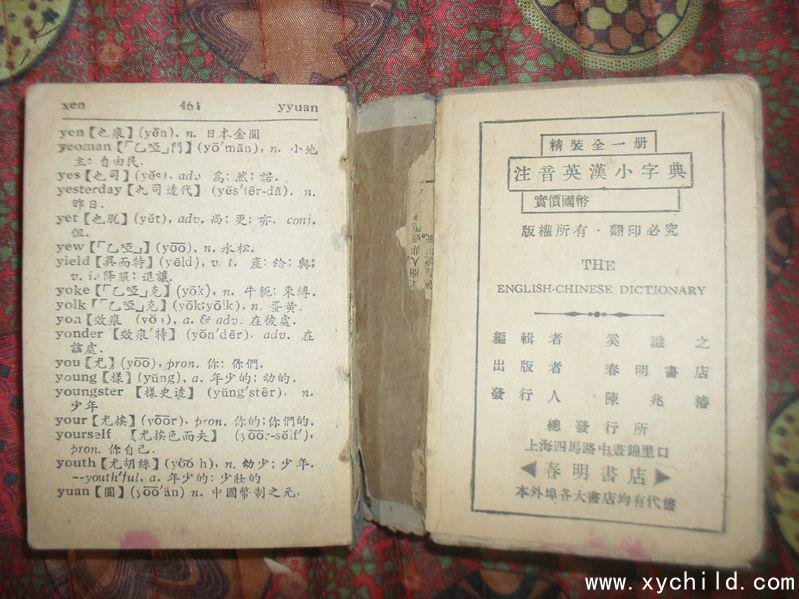 xen 461 yyuan
yen【也痕】(yĕn), n. 日本金圓
yeoman【「乙啞」門】(yō'măn), n. 小地
主; 自由民.
yes【也司】(yĕs), adv. 爲; 然; 諾.
yesterday【也司透代】(yĕs'tẽr-dā), n.
昨日.
yet【也脫】(yĕt), adv. 尚; 更; 亦. conj.
但.
yew【「乙啞」】(yo͞o), n. 水松.
yield【異而特】(yēld), v. t. 產; 給; 與;
v. i. 降服; 退讓.
yoke【「乙啞」克】(yōk), n. 牛軛; 束縛.
yolk【「乙啞」克】(yōk; yōlk), n. 蛋黄.
yon【效痕】, a. & adv. 在彼處.
yonder【效痕'特】(yŏn'dẽr), adv. 在
該處.
you【尤】(yo͞o), pron. 你; 你們.
young【樣】(yŭng), a. 年少的; 幼的.
youngster【樣史透】(yŭng'stẽr), n.
少年
your【尤挨】(yo͞or), pron. 你的; 你們的.
yourself【尤挨色而夫】
pron. 你自己.
youth【尤胡絲】, n. 幼少; 少年.
--youthful, a. 年少的; 少壯的
yuan【圓】n. 中國幣制之元.
精裝全一册
注音英漢小字典
實價國幣
版權所有·翻印必究
THE
ENGLISH-CHINESE DICTIONARY
編輯者 奚識之
出版者 春明書店
發行人 陳兆椿
總發行所
上海四馬路中晝錦里口
◀春明書店▶
本外埠各大書店均有代售
www.xychild.com